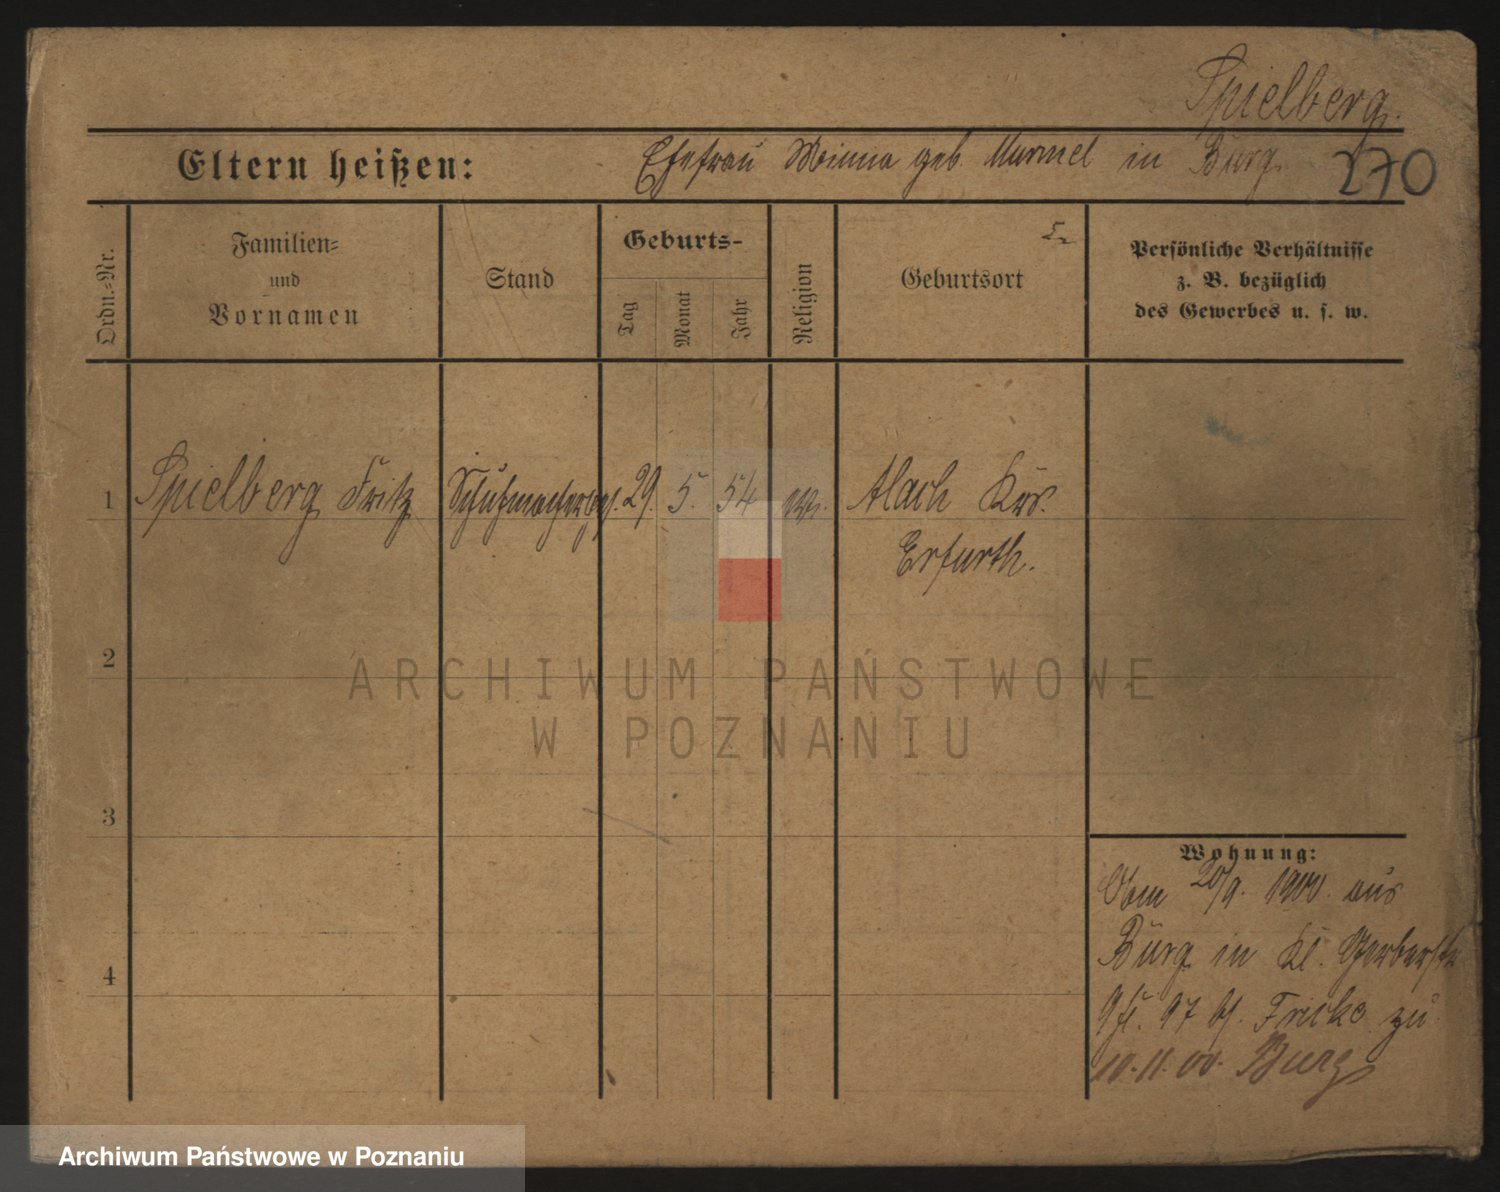 Spielberg.
Eltern heißen: Ehefrau Minna geb. Murmel in Burg.
270
Ordn.-Nr.
Familien-
und
Vornamen
Stand
Geburts-
Tag
Monat
Jahr
Religion
Geburtsort
Persönliche Verhältnisse
z. B. bezüglich
des Gewerbes u. s. w.
1 Spielberg Fritz Schuhmacherges. 29. 5. 54 ev. Alach Krs.
Erfurth.
2
3
4
ARCHIWUM PAŃSTWOWE
W POZNANIU
Wohnung:
20/9. 1900. aus
Burg in Kl. Gerberstr
9 97 b/. Fricke zu
10.11.00. Burg
Archiwum Państwowe w Poznaniu